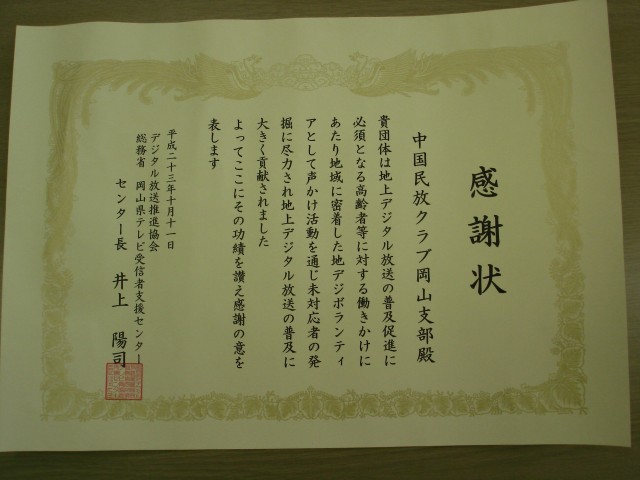 感謝状
中国民放クラブ岡山支部殿
貴団体は地上デジタル放送の普及促進に
必須となる高齢者等に対する働きかけに
あたり地域に密着した地デジボランティ
アとして声かけ活動を通じ未対応者の発
掘に尽力され地上デジタル放送の普及に
大きく貢献されました
よってここにその功績を讃え感謝の意を
表します
平成二十三年十月十一日
デジタル放送推進協会
総務省 岡山県テレビ受信者支援センター
センター長 井上 陽司